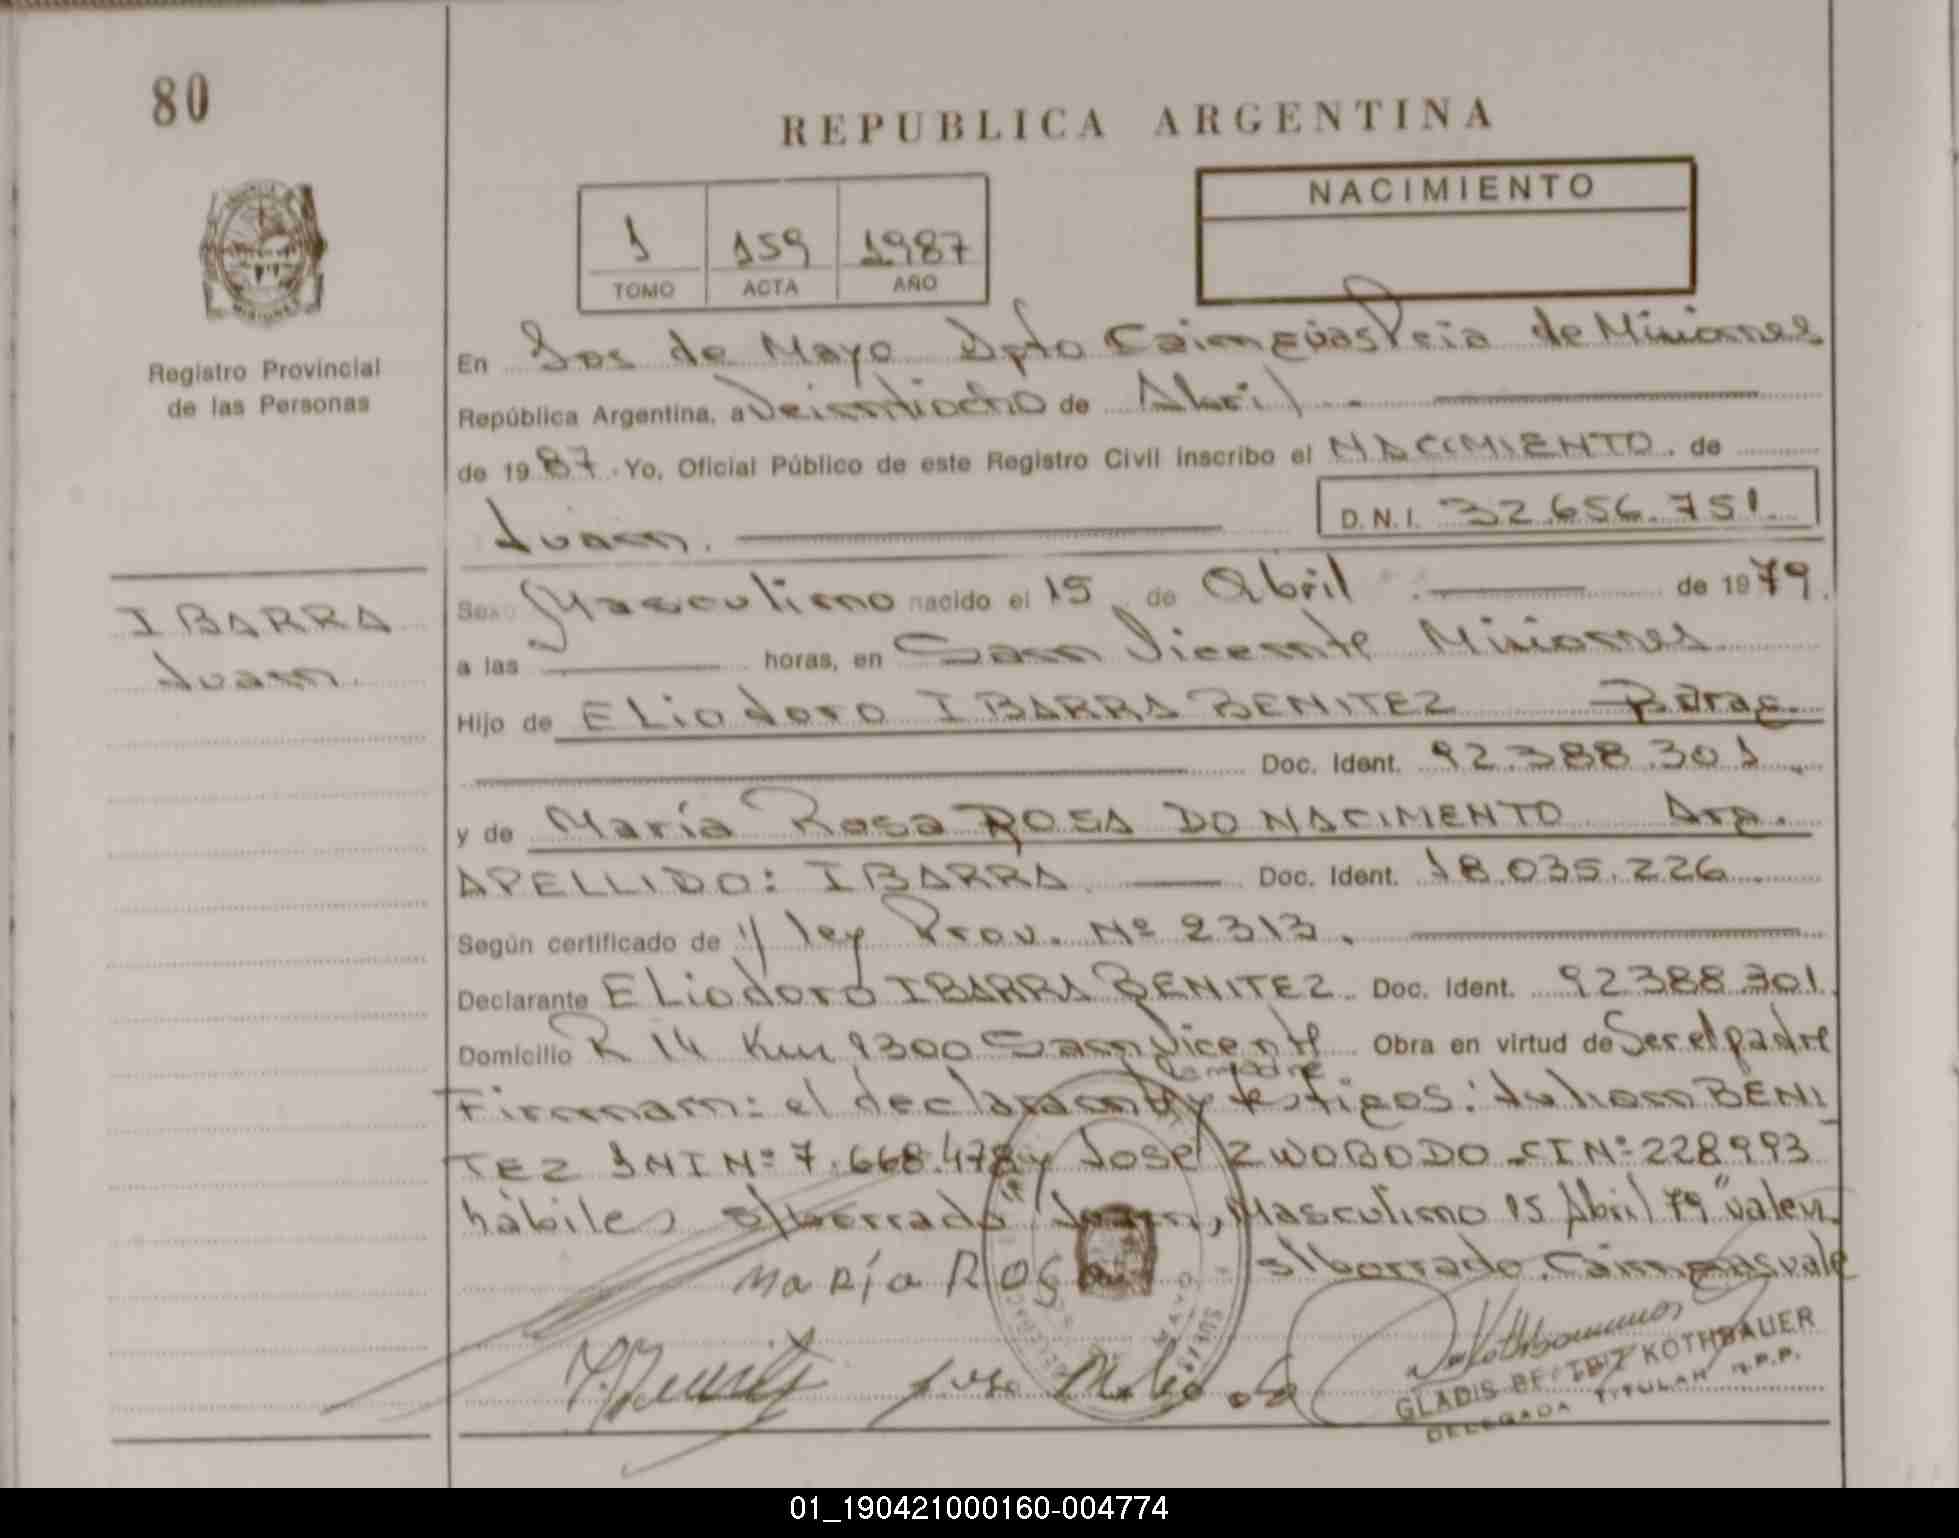 80
REPUBLICA ARGENTINA
NACIMIENTO
1 159 1987
TOMO ACTA AÑO
MISIONES
Registro Provincial
de las Personas
En Dos de Mayo Dpto Cainguas Pcia de Misiones
República Argentina, a Veintiocho de Abril
de 1987. Yo, Oficial Público de este Registro Civil inscribo el NACIMIENTO. de
Juan. D.N.I. 32.656.751.
IBARRA
Juan.
Sexo Masculino nacido el 15 de Abril de 1979.
a las horas, en San Vicente Misiones
Hijo de ELiodoro IBARRA BENITEZ Parag.
Doc. Ident. 92.388.301.
y de María Rosa ROSA DO NACIMENTO Arg.
APELLIDO: IBARRA Doc. Ident. 18.035.226
Según certificado de s/ ley Prov. Nº 2313.
Declarante ELiodoro IBARRA BENITEZ. Doc. Ident. 92388.301.
Domicilio R 14 Km 1300 San Vicente Obra en virtud de Ser el padre
la madre
Firman: el declarante y testigos: Julian BENI
TEZ DNI Nº 7.668.478 y José ZWOBODO CI Nº 228993
hábiles s/borrado "Juan, Masculino 15 Abril 79" valen
María ROSA s/borrado Cainguas vale
GLADIS BEATRIZ KOTHBAUER
DELEGADA TITULAR R.P.P.
01_190421000160-004774